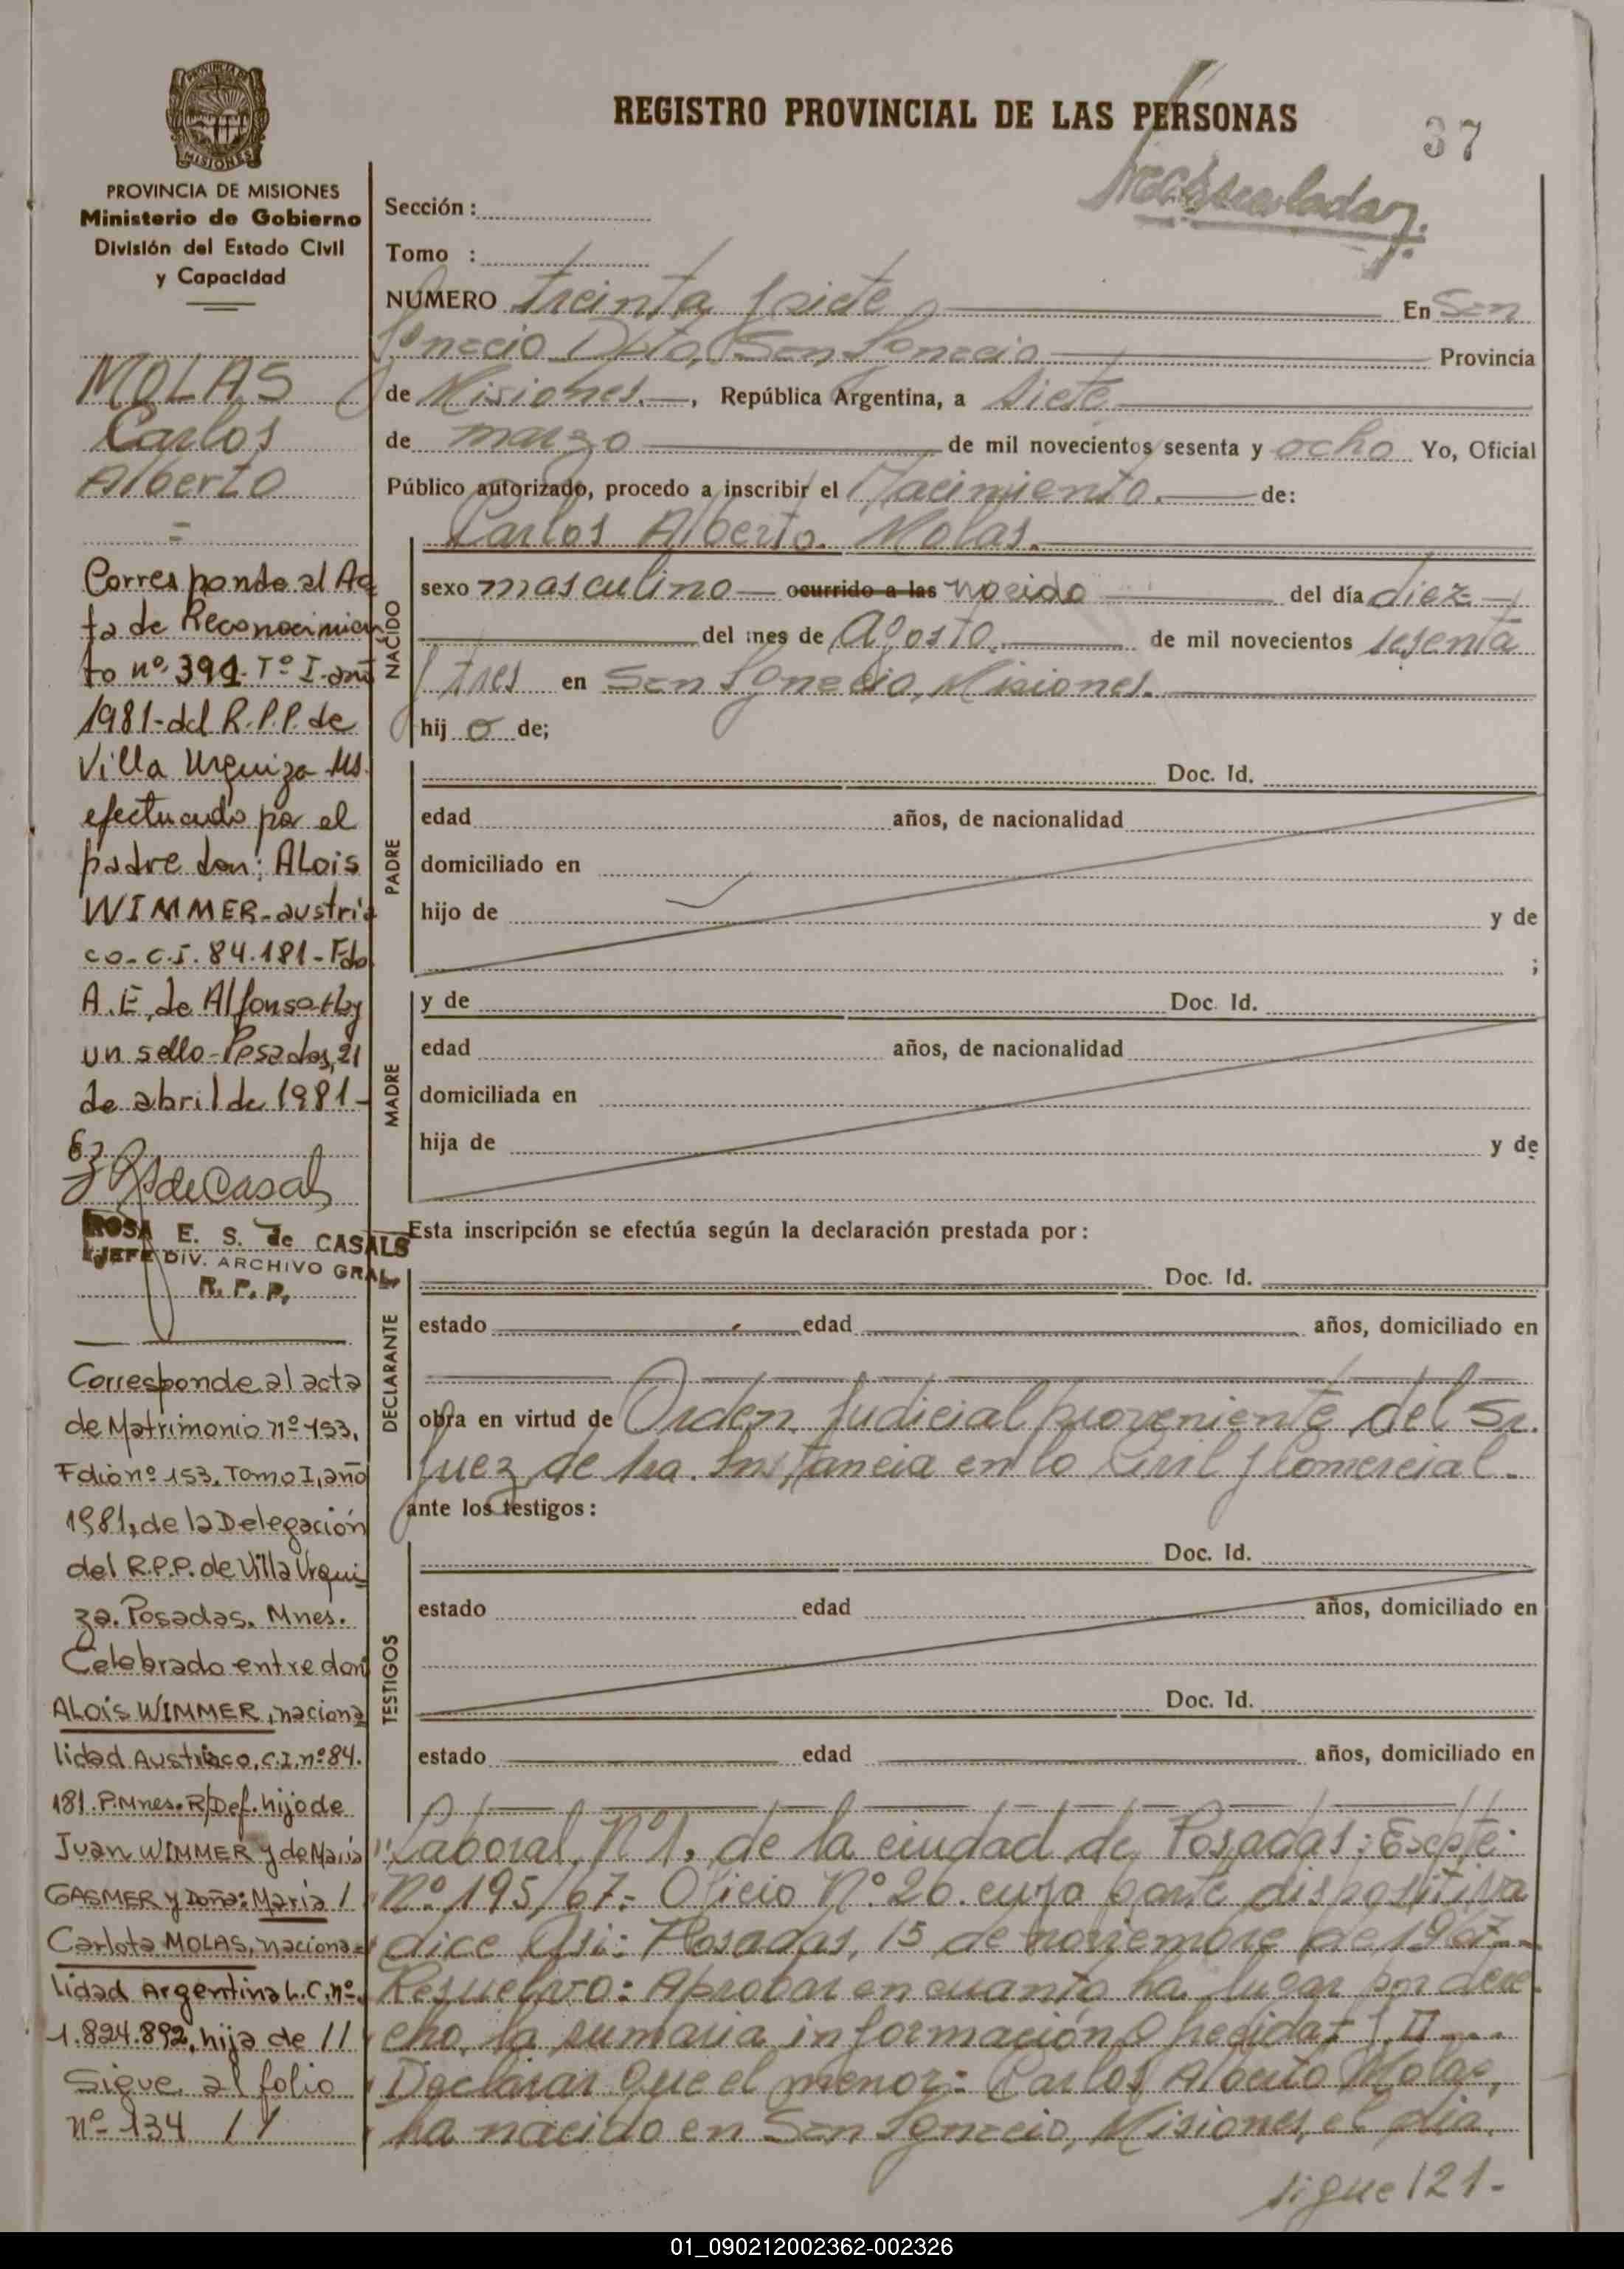 REGISTRO PROVINCIAL DE LAS PERSONAS
37
PROVINCIA DE MISIONES
Ministerio de Gobierno
División del Estado Civil
y Capacidad
MOLAS
Carlos
Alberto
=
Corresponde al Ac
ta de Reconocimien
to nº 391 Tº I año
1981- del R.P.P. de
Villa Urquiza Ms.
efectuado por el
padre don: ALois
WIMMER-austría
co- C.I. 84.181- Fdo
A.E. de Alfonso-Hay
un sello-Posadas, 21
de abril de 1981-
de Casals
ROSA E. S. de CASALS
JEFE DIV. ARCHIVO GRAL.
R. P. P.
Corresponde al acta
de Matrimonio nº 153,
Folio nº 153, Tomo I, año
1981, de la Delegación
del R.P.P. de Villa Urqui
za. Posadas. Mnes.
Celebrado entre don
ALOiS WIMMER, naciona
lidad Austriaco, C.I. nº 84.
181. P. Mnes. R/Def. hijo de
Juan WIMMER y de María
GASMER y Doña: María /
Carlota MOLAS, naciona=
lidad Argentina L.C. nº
1.824.892, hija de //
Sigue al folio
nº 134 //
Sección :
Tomo :
NUMERO treinta y siete En San
Ignacio Dpto. San Ignacio Provincia
de Misiones.—, República Argentina, a siete
de marzo de mil novecientos sesenta y ocho Yo, Oficial
Público autorizado, procedo a inscribir el Nacimiento. de:
Carlos Alberto. Molas.
NACIDO
sexo masculino— ocurrido a las nacido del día diez
del mes de Agosto. de mil novecientos sesenta
y tres en San Ignacio, Misiones.
hij o de;
PADRE
Doc. Id.
edad años, de nacionalidad
domiciliado en
hijo de y de
;
MADRE
y de Doc. Id.
edad años, de nacionalidad
domiciliada en
hija de y de
Esta inscripción se efectúa según la declaración prestada por :
DECLARANTE
Doc. Id.
estado edad años, domiciliado en
obra en virtud de Orden Judicial proveniente del Sr.
Juez de 1ra. Instancia en lo Civil y Comercial.
ante los testigos :
TESTIGOS
Doc. Id.
estado edad años, domiciliado en
Doc. Id.
estado edad años, domiciliado en
"Laboral, Nº1, de la ciudad de Posadas: Expte:
Nº 195/67= Oficio Nº 26. cuya parte dispositiva
dice Asi: Posadas, 15 de noviembre de 1967.-
Resuelvo: Aprobar en cuanto ha lugar por dere
cho, la sumaria información II
Declarar que el menor: Carlos Alberto Molas,
ha nacido en San Ignacio, Misiones, el día
sigue 121-
01_090212002362-002326